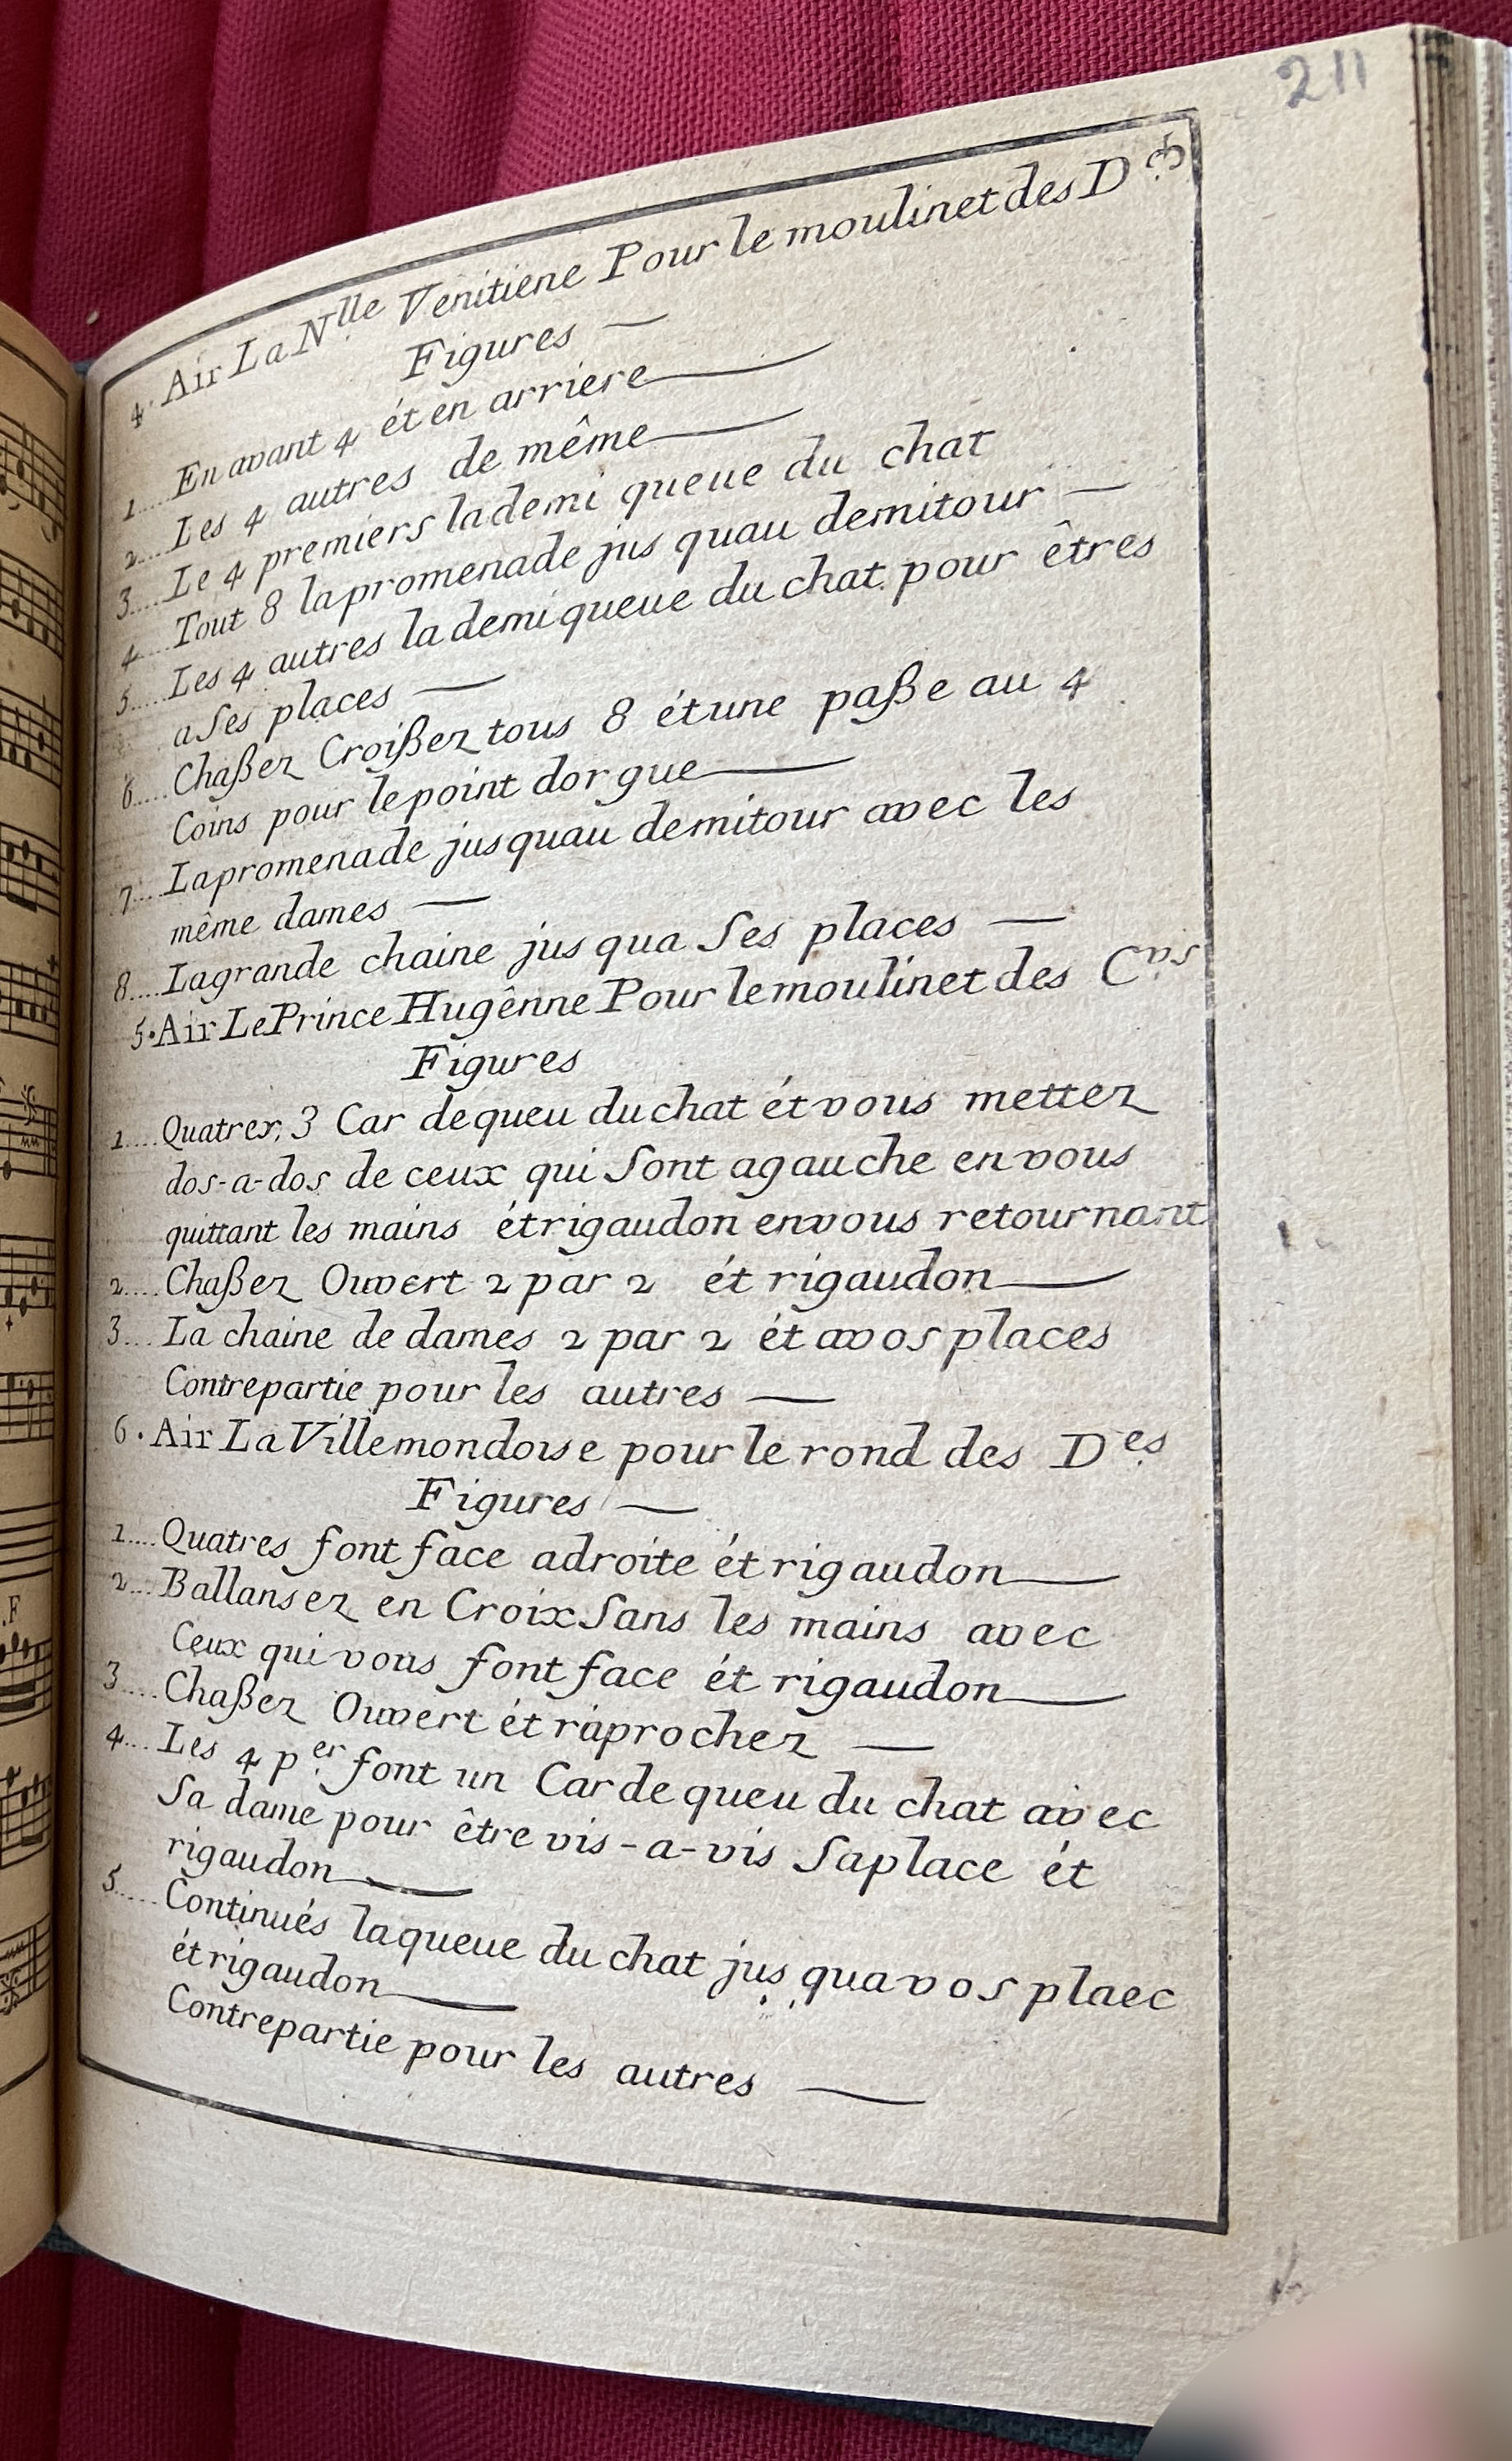 211
4. Air La Nlle Venitiene Pour le moulinet des Des
Figures —
1.... En avant 4 ét en arriere —
2.... Les 4 autres de même —
3.... Le 4 premiers la demi queue du chat
4.... Tout 8 la promenade jus quau demitour —
5.... Les 4 autres la demi queue du chat pour êtres
a ſes places —
6.... Chaßez Croißez tous 8 ét une paße au 4
Coins pour le point dorgue —
7... La promenade jusquau demitour avec les
même dames —
8.... La grande chaine jus qua ſes places —
5. Air Le Prince Hugênne Pour le moulinet des Cvs
Figures
1.... Quatrez 3 Car de queu du chat ét vous mettez
dos-a-dos de ceux qui ſont a gauche en vous
quittant les mains ét rigaudon en vous retournant
2.... Chaßez Ouvert 2 par 2 ét rigaudon —
3... La chaine de dames 2 par 2 ét a vos places
Contrepartie pour les autres —
6. Air La Villemondoise pour le rond des Des
Figures —
1.... Quatres font face a droite ét rigaudon —
2... Ballansez en Croix ſans les mains avec
Ceux qui vous font face ét rigaudon —
3.... Chaßez Ouvert ét raprochez —
4... Les 4 per font un Car de queu du chat avec
ſa dame pour être vis-a-vis ſa place ét
rigaudon —
5.... Continués la queue du chat jus qua vos plaec
ét rigaudon —
Contrepartie pour les autres —